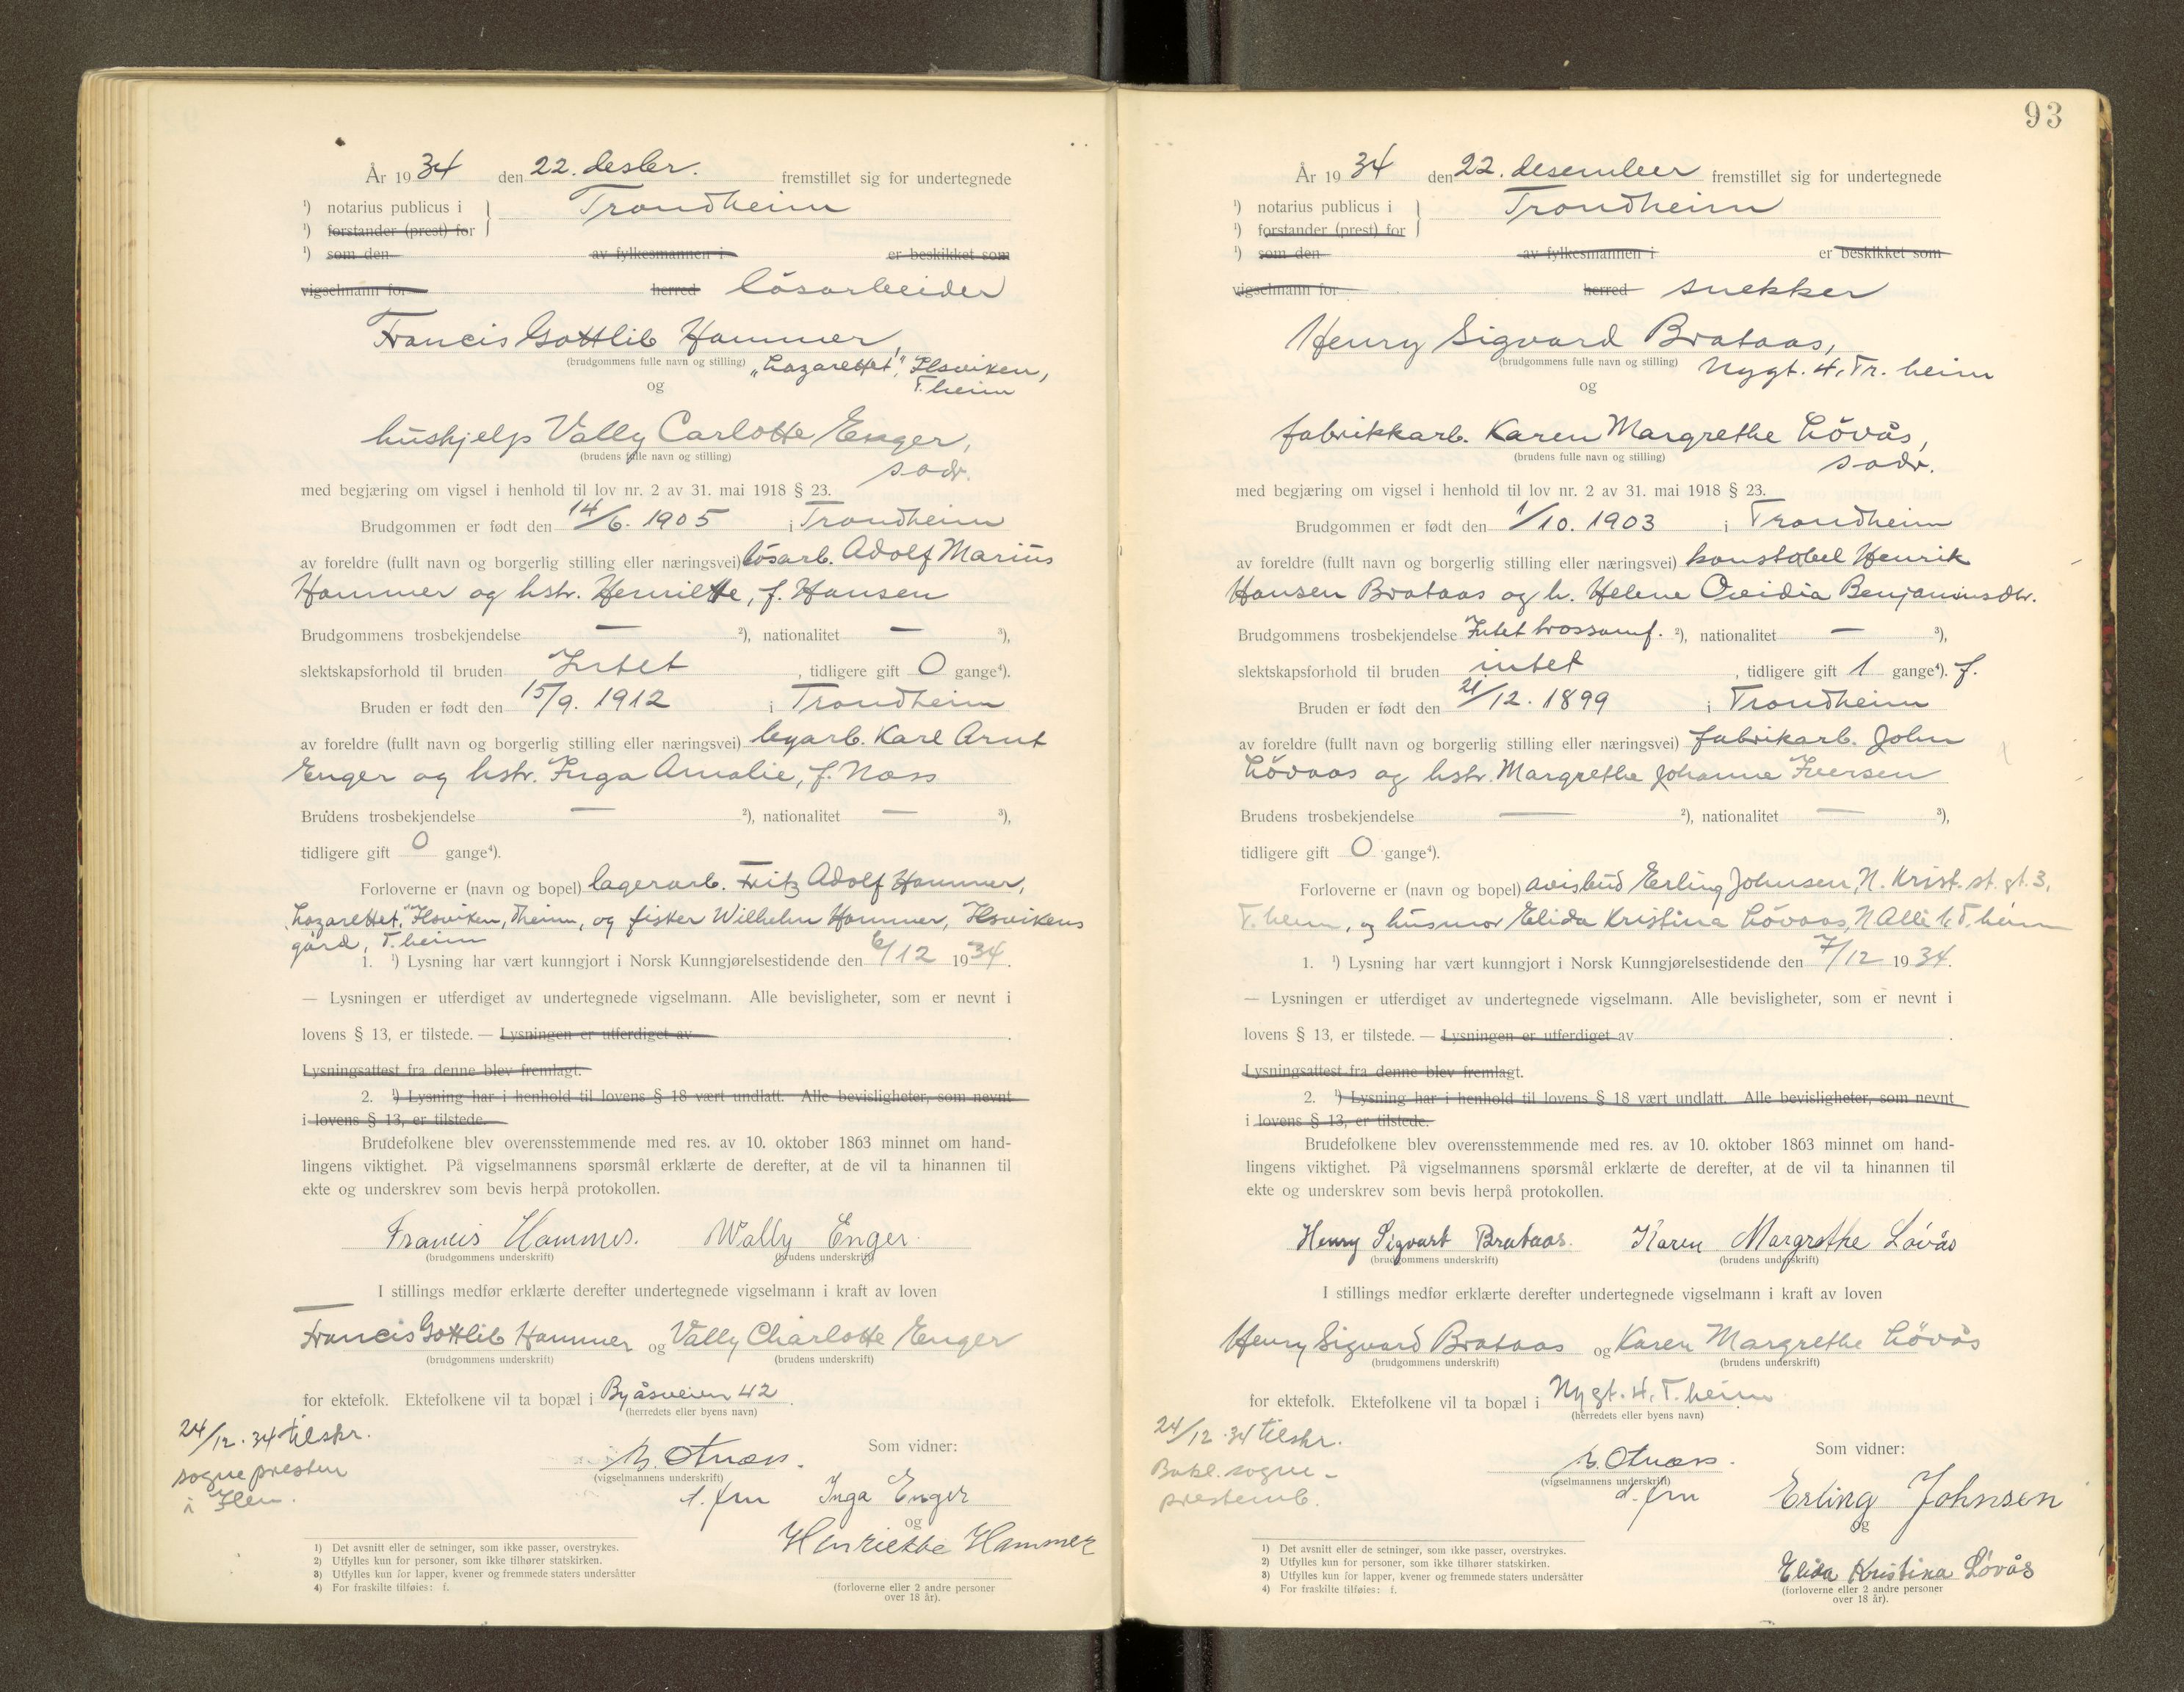 År 19 34 den 22. desbr. fremstillet sig for undertegnede
¹) notarius publicus i Trondheim
¹) forstander (prest) for
¹) som den av fylkesmannen i er beskikket som
vigselmann for herred løsarbeider
Francis Gottlib Hammer,
(brudgommens fulle navn og stilling) „Lazarettet", Ilsviken,
og T.heim
hushjelp Vally Carlotte Enger,
(brudens fulle navn og stilling)
s adr.
med begjæring om vigsel i henhold til lov nr. 2 av 31. mai 1918 § 23.
Brudgommen er født den 14/6. 1905 i Trondheim
av foreldre (fullt navn og borgerlig stilling eller næringsvei) løsarb. Adolf Marius
Hammer og hstr. Henriette, f. Hansen
Brudgommens trosbekjendelse — ²), nationalitet — ³),
slektskapsforhold til bruden Intet , tidligere gift 0 gange⁴).
Bruden er født den 15/9. 1912 i Trondheim
av foreldre (fullt navn og borgerlig stilling eller næringsvei) byarb. Karl Arnt
Enger og hstr. Inga Amalie, f. Næss
Brudens trosbekjendelse — ²), nationalitet — ³),
tidligere gift 0 gange⁴).
Forloverne er (navn og bopel) lagerarb. Fritz Adolf Hammer,
„Lazarettet," Ilsviken, Theim, og fisker Wilhelm Hammer, Ilsvikens
gård, T.heim
1. ¹) Lysning har vært kunngjort i Norsk Kunngjørelsestidende den 6/12 1934.
— Lysningen er utferdiget av undertegnede vigselmann. Alle bevisligheter, som er nevnt i
lovens § 13, er tilstede. — Lysningen er utferdiget av .
Lysningsattest fra denne blev fremlagt.
2. ¹) Lysning har i henhold til lovens § 18 vært undlatt. Alle bevisligheter, som nevnt
i lovens § 13, er tilstede.
Brudefolkene blev overensstemmende med res. av 10. oktober 1863 minnet om hand-
lingens viktighet. På vigselmannens spørsmål erklærte de derefter, at de vil ta hinannen til
ekte og underskrev som bevis herpå protokollen.
Francis Hammer. Wally Enger.
(brudgommens underskrift) (brudens underskrift)
I stillings medfør erklærte derefter undertegnede vigselmann i kraft av loven
Francis Gottlib Hammer og Vally Charlotte Enger
(brudgommens underskrift) (brudens underskrift)
for ektefolk. Ektefolkene vil ta bopæl i Byåsveien 42 .
(herredets eller byens navn)
24/12. 34 tilskr.
sogne presten
i Ilen.
Som vidner:
(vigselmannens underskrift)
Inga Enger
og
Henriette Hammer
(forloverne eller 2 andre personer
over 18 år).
1) Det avsnitt eller de setninger, som ikke passer, overstrykes.
2) Utfylles kun for personer, som ikke tilhører statskirken.
3) Utfylles kun for lapper, kvener og fremmede staters undersåtter
4) For fraskilte tilføies: f.
93
År 19 34 den 22. desember fremstillet sig for undertegnede
¹) notarius publicus i Trondheim
¹) forstander (prest) for
¹) som den av fylkesmannen i er beskikket som
vigselmann for herred snekker
Henry Sigvard Brataas,
(brudgommens fulle navn og stilling) Nygt. 4, Tr. heim
og
fabrikkarb. Karen Margrethe Løvås,
(brudens fulle navn og stilling)
s adr.
med begjæring om vigsel i henhold til lov nr. 2 av 31. mai 1918 § 23.
Brudgommen er født den 1/10. 1903 i Trondheim
av foreldre (fullt navn og borgerlig stilling eller næringsvei) konstabel Henrik
Hansen Brataas og h. Helene Ovidia Benjaminsdtr.
Brudgommens trosbekjendelse Intet trossamf. ²), nationalitet — ³),
slektskapsforhold til bruden intet , tidligere gift 1 gange⁴). f.
Bruden er født den 21/12. 1899 i Trondheim
av foreldre (fullt navn og borgerlig stilling eller næringsvei) fabrikarb. John
Løvaas og hstr. Margrethe Johanne Iversen
Brudens trosbekjendelse — ²), nationalitet — ³),
tidligere gift 0 gange⁴).
Forloverne er (navn og bopel) avisbud Erling Johnsen, N. Krist. st. gt. 3,
T.heim, og husmor Elida Kristina Løvaas, N Allé 1, T.heim
1. ¹) Lysning har vært kunngjort i Norsk Kunngjørelsestidende den 7/12 1934.
— Lysningen er utferdiget av undertegnede vigselmann. Alle bevisligheter, som er nevnt i
lovens § 13, er tilstede. — Lysningen er utferdiget av .
Lysningsattest fra denne blev fremlagt.
2. ¹) Lysning har i henhold til lovens § 18 vært undlatt. Alle bevisligheter, som nevnt
i lovens § 13, er tilstede.
Brudefolkene blev overensstemmende med res. av 10. oktober 1863 minnet om hand-
lingens viktighet. På vigselmannens spørsmål erklærte de derefter, at de vil ta hinannen til
ekte og underskrev som bevis herpå protokollen.
Henry Sigvart Brataas. Karen Margrethe Løvås
(brudgommens underskrift) (brudens underskrift)
I stillings medfør erklærte derefter undertegnede vigselmann i kraft av loven
Henry Sigvard Brataas og Karen Margrethe Løvås
(brudgommens underskrift) (brudens underskrift)
for ektefolk. Ektefolkene vil ta bopæl i Nygt. 4, T.heim .
(herredets eller byens navn)
24/12 . 34 tilskr.
Bakl. sogne-
prestemb.
Som vidner:
(vigselmannens underskrift)
Erling Johnsen
og
Elida Kristina Løvås
(forloverne eller 2 andre personer
over 18 år).
1) Det avsnitt eller de setninger, som ikke passer, overstrykes.
2) Utfylles kun for personer, som ikke tilhører statskirken.
3) Utfylles kun for lapper, kvener og fremmede staters undersåtter
4) For fraskilte tilføies: f.